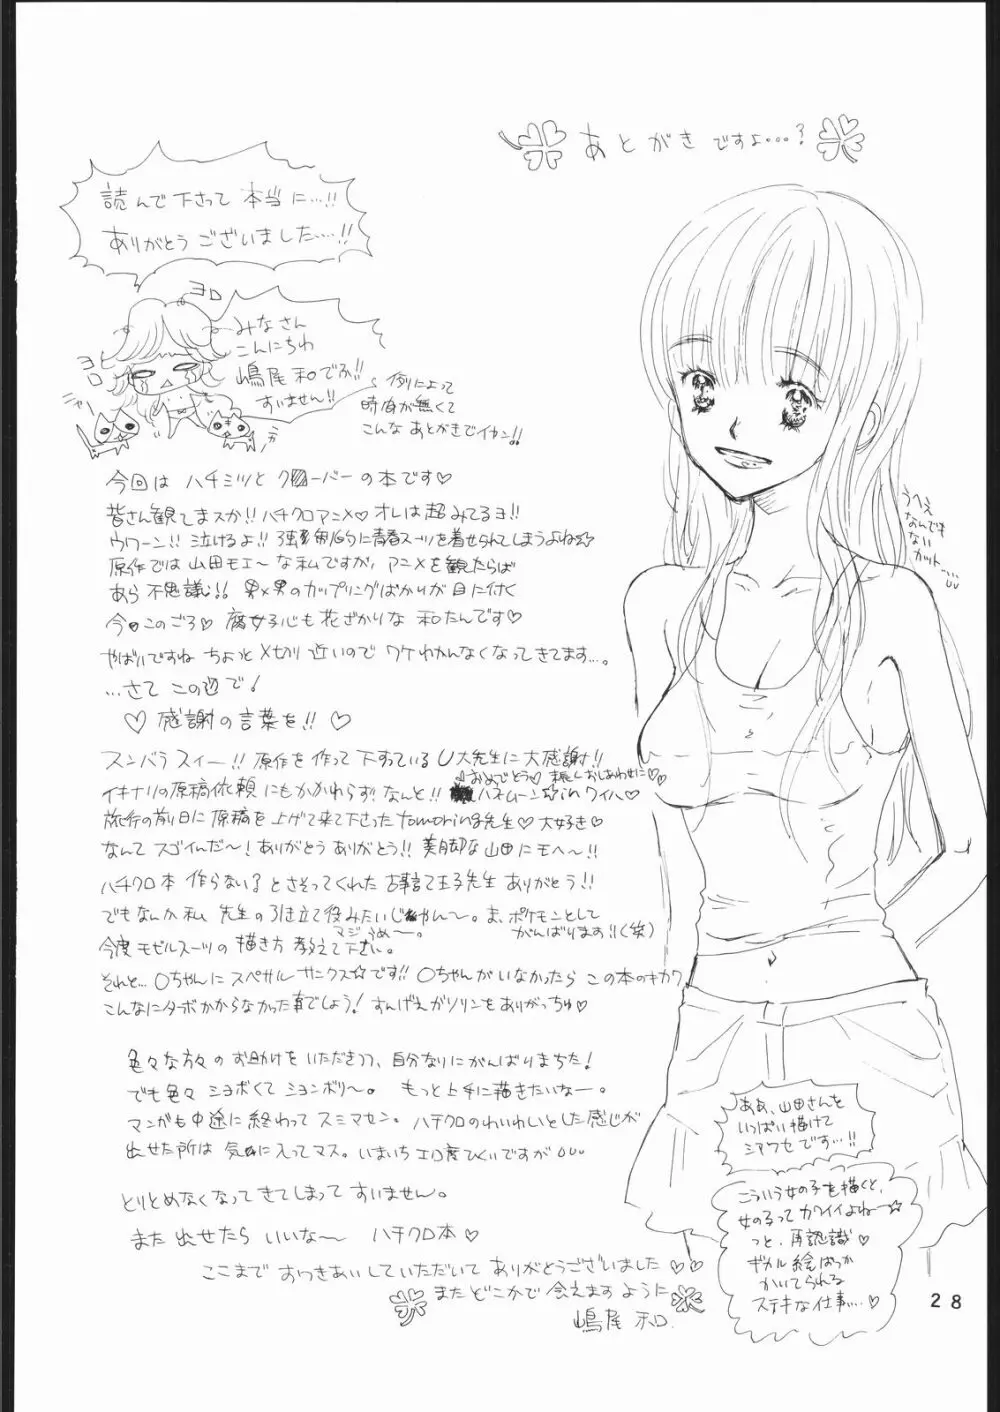 あとがきですよ…?
読んで下さって本当に…!!
ありがとうございました…!!
ヨロ
ヨロ
ニャー
みなさん
こんにちわ
嶋尾和でふ!!
すいません!!
例によって
時間が無くて
こんなあとがきでイカン!!
今回は ハチミツとクローバーの本です♡
皆さん観てまスか!! ハチクロアニメ♡オレは超みてるヨ!!
ウワーン!! 泣けるよ!! 強制的に青春スーツを着せられてしまうよね☆
原作では山田モエ〜な私ですが、アニメを観たらば
あら不思議!! 男×男のカップリングばかりが目に付く
今日このごろ♡ 腐女子心も花ざかりな 和たんです♡
やばいですね ちょっと〆切り近いので ワケわかんなくなってきてます…。
…さて この辺で!
♡ 感謝の言葉を!! ♡
スンバラスィー!! 原作を作って下すっているU大先生に大感謝!!
おめでとう♡ 末長しおしあわせに♡♡
イキナリの原稿依頼にもかかわらず、なんと!! ハネムーン☆in ワイハ♡
旅行の前日に原稿を上げて来て下さったtomoring先生♡大好き♡
なんてスゴイんだ〜! ありがとうありがとう!! 美脚な山田にモヘ〜!!
ハチクロ本 作らない?とさそってくれた 古事言て王子先生 ありがとう!!
でもなんか私 先生の引き立て役みたいじゃん〜。ま、ポケモンとして
マジうめ〜。 がんばります!!(笑)
今度モゼルスーツの描き方教えて下さい。
それと…Oちゃんにスペサルサンクス☆です!! Oちゃんがいなかったら この本のキカク
こんなにターボかからなかった事でしょう! すんげえガソリンをありがっちゅ♡
色々な方々のお助けをいただきつつ、自分なりにがんばりまちた!
でも色々ショボくてションボリ〜。 もっと上手に描きたいなー。
マンガも中途に終わってスミマセン。ハチクロのわいわいとした感じが
出せた所は気に入ってマス。いまいちエロ度ひくいですが
とりとめなくなってきてしまってすいません。
また出せたらいいな〜 ハチクロ本♡
ここまでおつきあいしていただいてありがとうございました♡♡
またどこかで会えますように
嶋尾 和.
うへえ
なんでも
ない
カット…
ああ、山田さんを
いっぱい描けて
シアワセです…!!
こういう女の子を描くと、
女の子ってカワイイよねー☆
っと、再認識♡
ギカル絵ばっか
かいてられる
ステキな仕事…♡
28